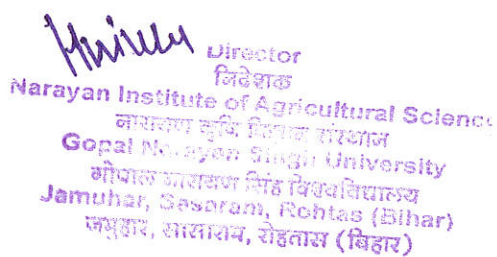 Director
निदेशक
Narayan Institute of Agricultural Science
नारायण कृषि विज्ञान संस्थान
Gopal Narayan Singh University
गोपाल नारायण सिंह विश्वविद्यालय
Jamuhar, Sasaram, Rohtas (Bihar)
जमुहार, सासाराम, रोहतास (बिहार)